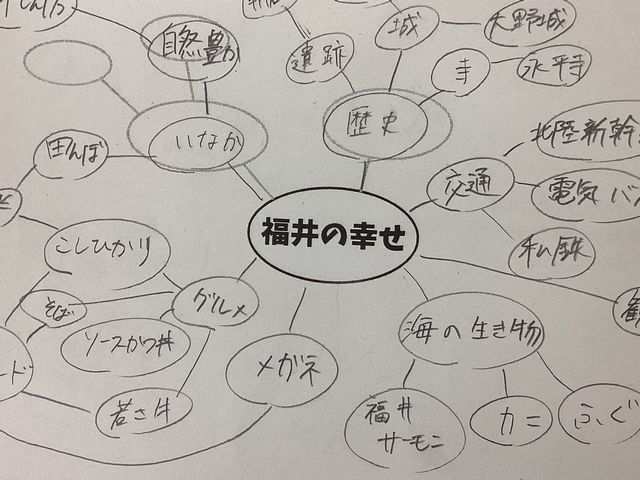 自然豊か
遺跡
城
大野城
寺
永平寺
いなか
歴史
田んぼ
北陸新幹
交通
電気バ
私鉄
福井の幸せ
こしひかり
そば
グルメ
ソースかつ丼
メガネ
海の生き物
若さ牛
福井
サーモン
カニ
ふぐ